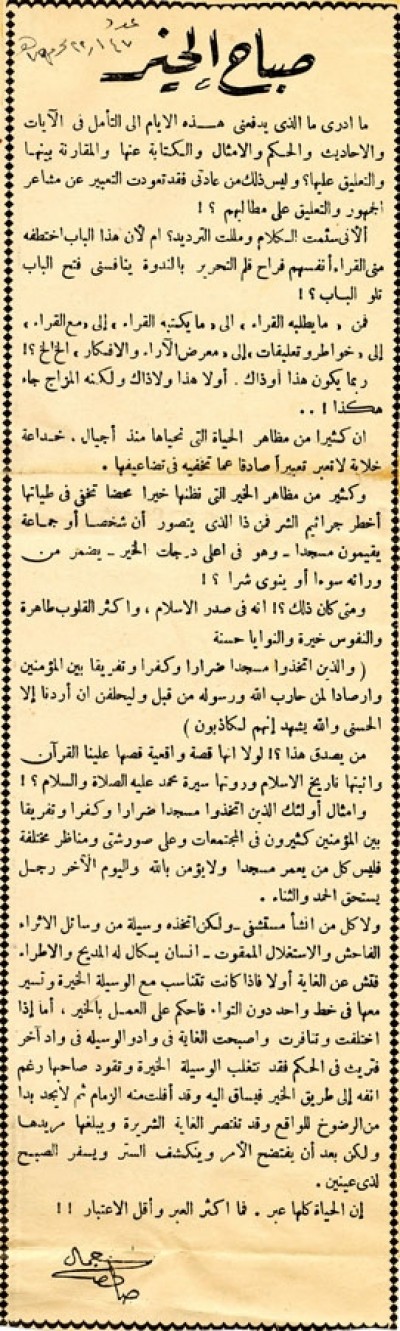 عدد
صباح الخير
ما ادرى ما الذى يدفعنى هـــذه الايام الى التأمل فى الآيات
والاحاديث والحكم والامثال والكتابة عنها والمقارنة بينها
والتعليق عليها؟ وليس ذلك من عادتى فقد تعودت التعبير عن مشاعر
الجمهور والتعليق على مطالبهم ؟!
ألأنى سئمت الكلام ومللت الترديد؟ ام لأن هذا الباب اختطفه
منى القراء أنفسهم فراح قلم التحرير بالندوة ينافسنى فتح الباب
تلو البـاب ؟!
فمن « ما يطلبه القراء » الى « ما يكتبه القراء » إلى « مع القراء »
إلى « خواطر وتعليقات » إلى « معرض الآراء والافكار » الخ الخ ؟!
ربما يكون هذا أو ذاك . أولا هذا ولا ذاك ولكنه المزاج جاء
هكذا ! . .
ان كثيرا من مظاهر الحياة التى نحياها منذ أجيال . خـداعة
خلابة لا تعبر تعبيراً صادقا عما تخفيه فى تضاعيفها .
وكثير من مظاهر الخير التى نظنها خيرا محضا تخفى فى طياتها
أخطر جرائيم الشر فمن ذا الذى يتصور أن شخصـا أو جماعة
يقيمون مسجدا ــ وهو فى اعلى درجات الخير ــ يضمر من
ورائه سوءا أو ينوى شرا ؟ !
ومتى كان ذلك ؟! انه فى صدر الاسلام ، واكثر القلوب طاهرة
والنفوس خيرة والنوايا حسنة
( والذين اتخذوا مسجدا ضرارا وكفرا وتفريقا بين المؤمنين
وارصادا لمن حارب الله ورسوله من قبل وليحلفن ان أردنا إلا
الحسنى والله يشهد إنهم لكاذبون )
من يصدق هذا ؟! لولا انها قصة واقعية قصها علينا القرآن
واثبتها تاريخ الاسلام وروتها سيرة محمد عليه الصلاة والسلام ؟ !
وامثال أولئك الذين اتخذوا مسجدا ضرارا وكفرا وتفريقا
بين المؤمنين كثيرون فى المجتمعات وعلى صور شتى ومناظر مختلفة
فليس كل من يعمر مسجدا ولا يؤمن بالله واليوم الآخر رجل
يستحق الحمد والثناء .
ولا كل من انشأ مستشفى ــ ولكن اتخذه وسيلة من وسائل الاثراء
الفاحش والاستغلال الممقوت ــ انسان يكال له المديح والاطراء
فتش عن الغاية أولا فاذا كانت تتناسب مع الوسيلة الخيرة وتسير
معها فى خط واحد دون التواء فاحكم على العمل بالخير ، أما إذا
اختلفت وتنافرت واصبحت الغاية فى واد والوسيله فى واد آخر
فتريث فى الحكم فقد تتغلب الوسيلة الخيرة وتقود صاحبها رغم
انفه إلى طريق الخير فيساق اليه وقد أفلت منه الزمام ثم لا يجد بدا
من الرضوخ للواقع وقد تنتصر الغاية الشريرة ويبلغها مريدهـا
ولكن بعد أن يفتضح الأمر وينكشف الستر ويسفر الصبح
لذى عينين .
إن الحياة كلها عبر . فما اكثر العبر وأقل الاعتبار !!
جمال
صالح